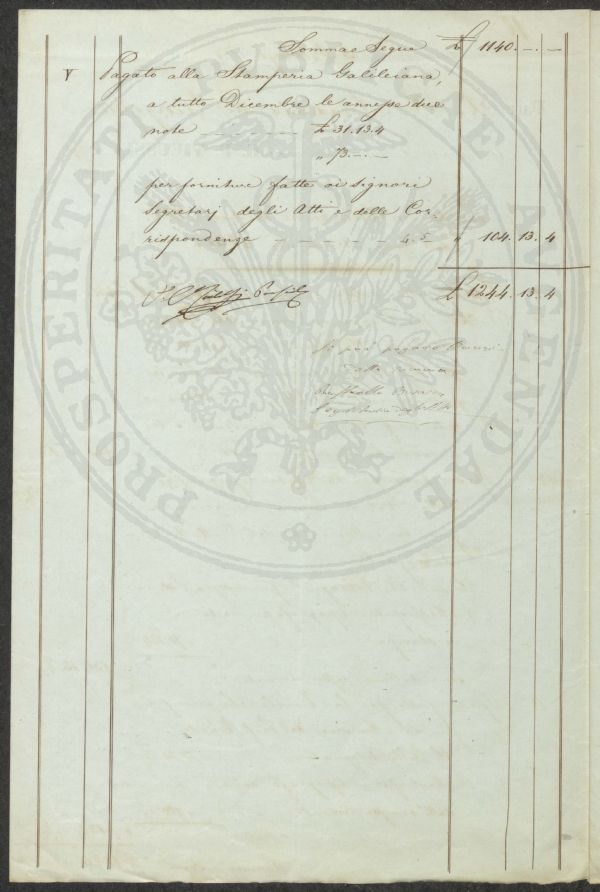 Somma e Segue £ 1140. — . —
V Pagato alla Stamperia Galileiana,
a tutto Dicembre le annesse due
note £ 31.13.4
„ 73. — . —
per forniture fatte ai Signori
Segretarj degli Atti e delle Cor-
rispondenze 4.5 „ 104. 13. 4
£ 1244. 13. 4
Si può
alla
Raffaello
PROSPERITATI PUBLICAE AUGENDAE